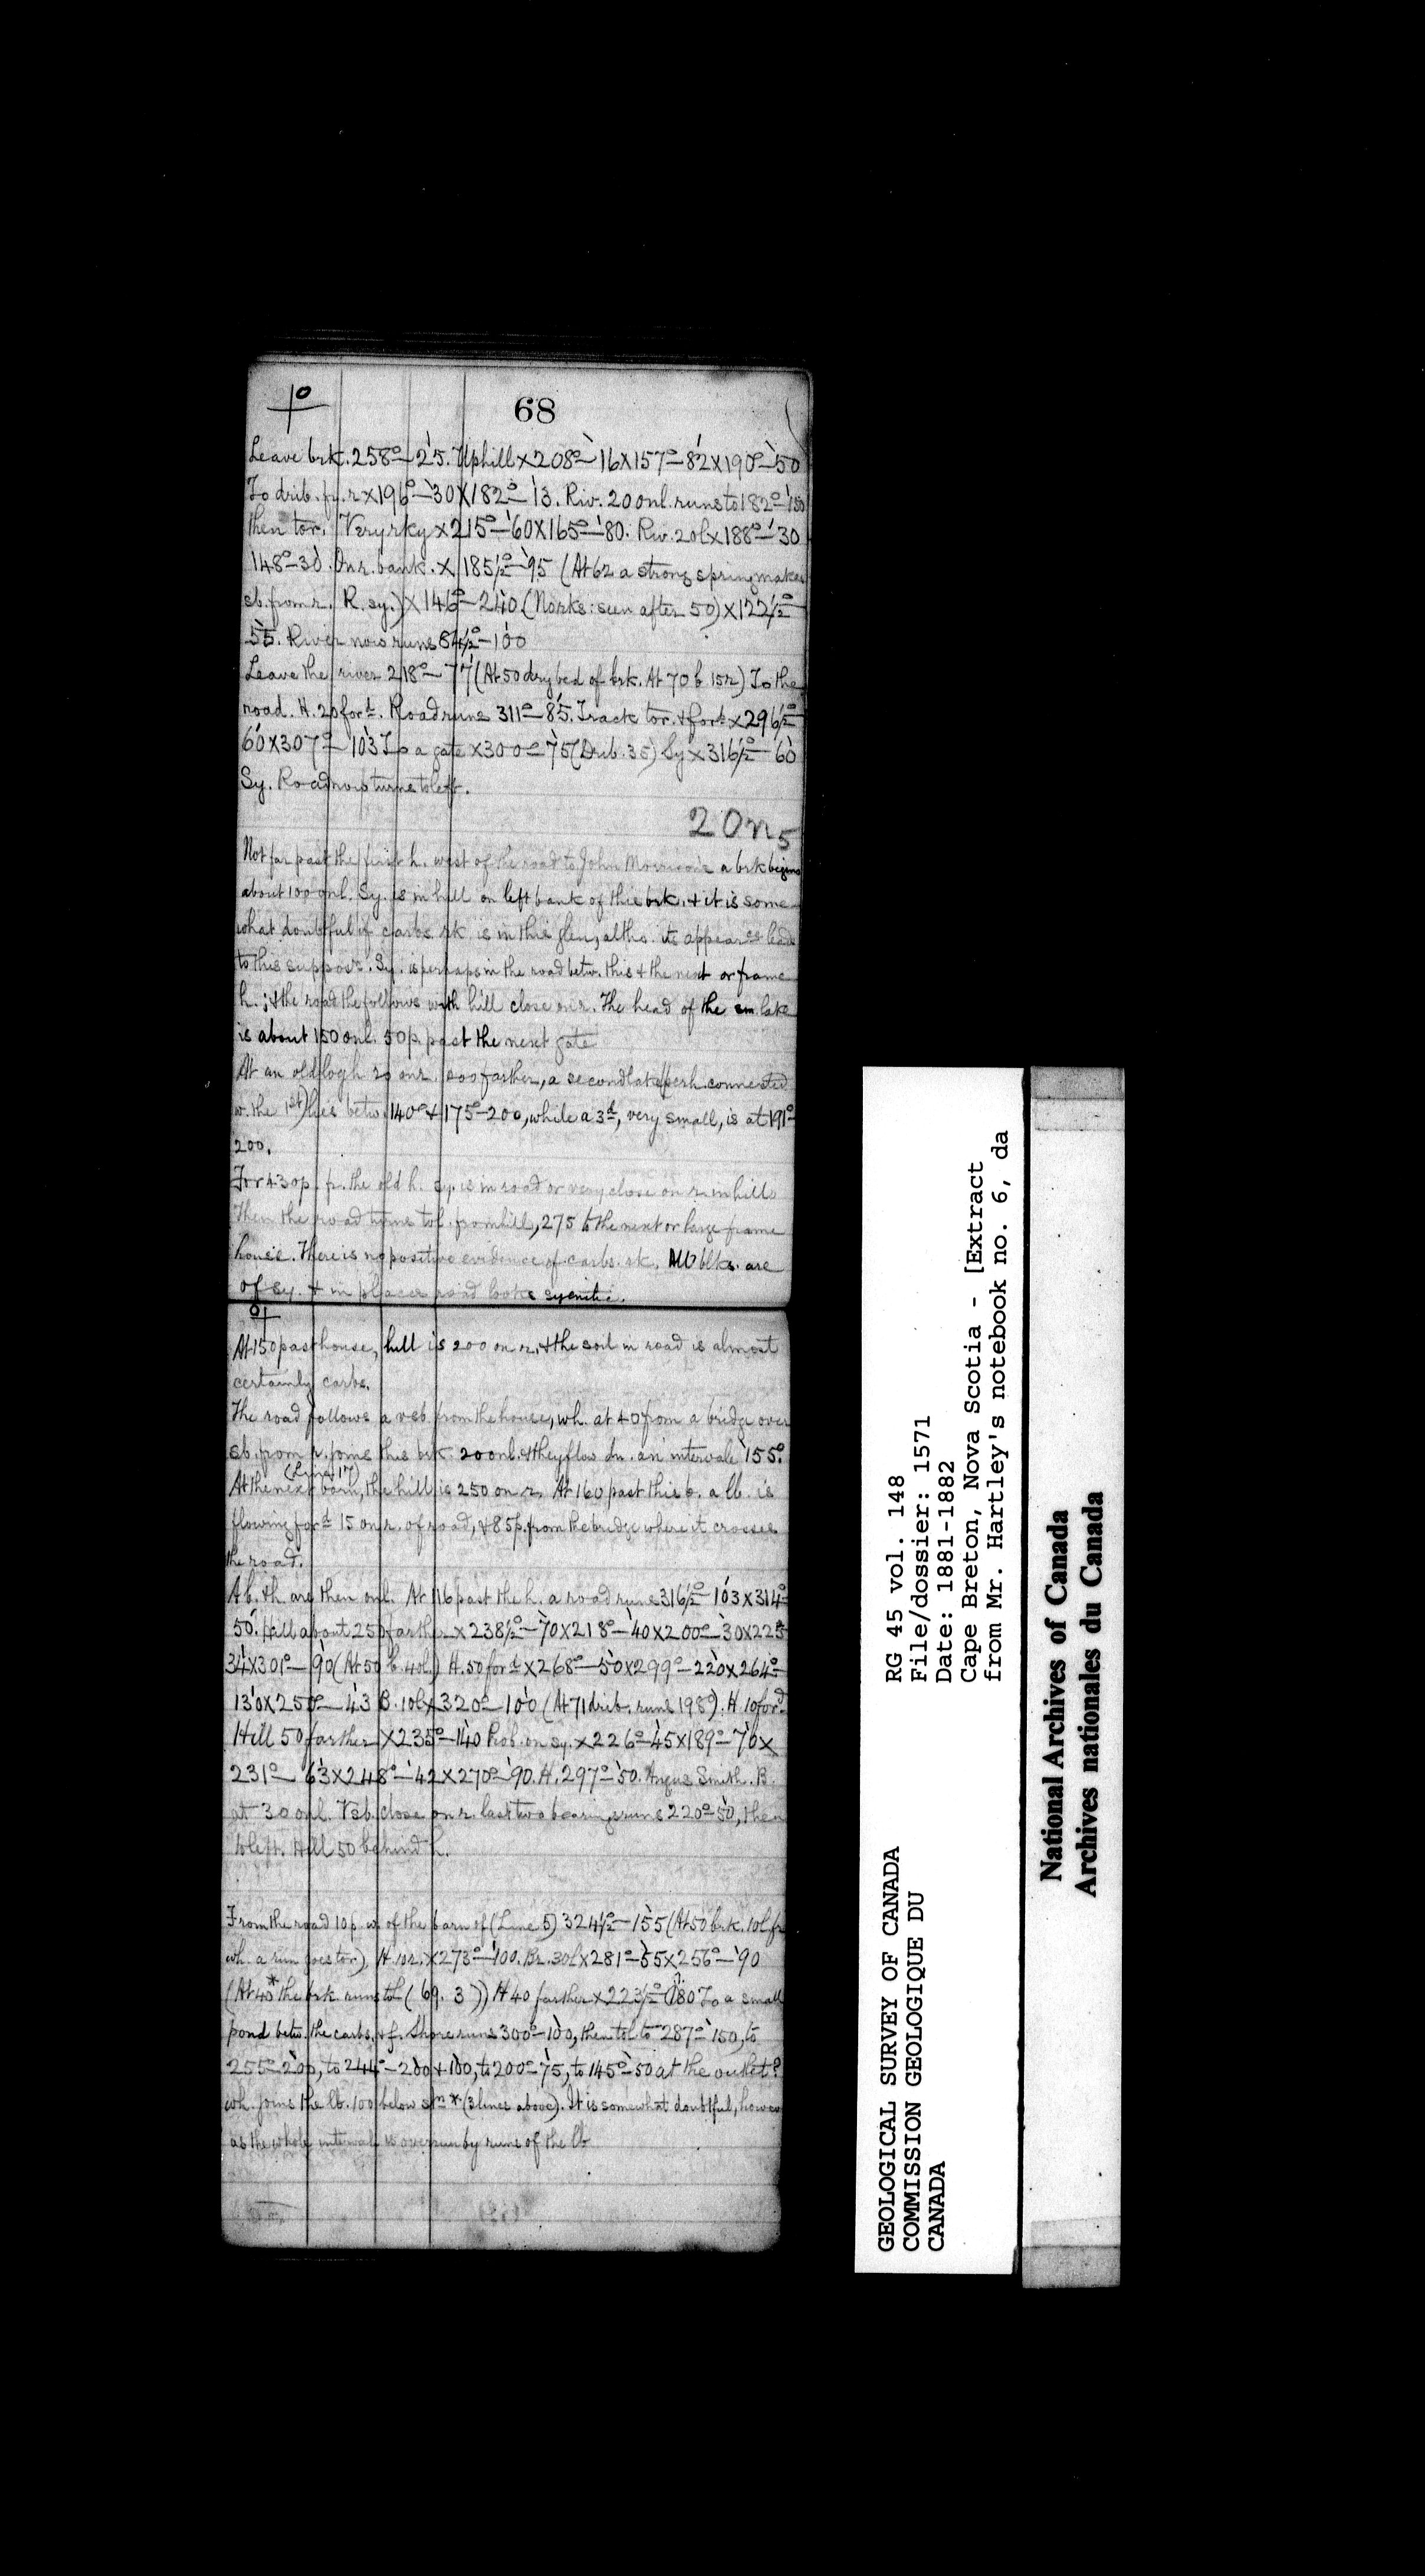 68
Leave brk. 258°–25. Uphill × 208°–16 × 157°–82 × 190°–50
To drib. fr. r × 196°–30 × 182°–13. Riv. 20 onl. runs to 182°–150
then tor. Very rky × 215°–60 × 165°–80. Riv. 20l × 188°–30
148°–30. On r. bank. × 185½°–95 (At 62 a strong spring makes
sb. from r. R. sy.) × 146°–240 (No rks: seen after 50) × 122½°–
55. River now runs 84½°–100
Leave the river 218°–77 (At 50 dry bed of brk. At 70 b 15r) To the
road. H. 20 ford. Road runs 311°–85. Track tor. & ford × 296½°–
60 × 307°–103 To a gate × 300°–75 (Drib. 35) Sy × 316½°–60
Sy. Road now turns to left.
20 n 5
Not far past the first h. west of the road to John Morrison's a brk begins
about 100 onl. Sy. is in hill on left bank of this brk. & it is some-
what doubtful if carbs. rk is in this glen, altho. its appearces lead
to this suppos. Sy. is perhaps in the road betw. this & the next or frame
h.; & the road the follows with hill close on r. The head of the sm. lake
is about 150 onl. 50 p. past the next gate
At an old log h 20 onr. 200 farther, a second lake (perh. connected
w. the 1st) lies betw. 140° & 175°–200, while a 3d, very small, is at 191°–
200.
For 430 p. fr. the old h. sy. is in road or very close on r. in hills
Then the road turns to l. from hill, 275 to the next or large frame
house. There is no positive evidence of carbs. rk. All blks. are
of sy. & in places road looks syenitic.
At 150 past house, hill is 200 on r. & the soil in road is almost
certainly carbs.
The road follows a vsb. from the house, wh. at 40 from a bridge over
sb. from r. joins this brk. 20 onl. & they flow dn. an intervale 155°.
(Line 17)
At the next barn, the hill is 250 on r. At 160 past this b. a lb. is
flowing ford 15 on r. of road, & 85 p. from the bridge where it crosses
the road.
A b. & h. are then onl. At 116 past the h. a road runs 316½°–103 × 314°–
50. Hill about 250 farther × 238½°–70 × 218°–40 × 200°–30 × 225°
34 × 301°–90 (At 50 b. 40l.) H. 50 ford × 268°–50 × 299°–220 × 264°–
130 × 250°–43 B. 10l × 320°–100 (At 71 drib. runs 198°). H 10 ford.
Hill 50 farther × 235°–140 Prob. on sy. × 226°–45 × 189°–70 ×
231°–63 × 248°–42 × 270°–90. H. 297°–50. Angus Smith. B.
at 30 onl. Vsb. close on r. last two bearings runs 220°–50, then
to left. Hill 50 behind h.
From the road 10 p. w. of the barn of (Line 5) 324½°–155 (At 50 brk. 10l fr
wh. a run goes tor), H. 10r. × 273°–100. Br. 30l × 281°–55 × 256°–90
(At 40* the brk. runs to l (69. 3)) H 40 farther × 223½°–180 To a small
pond betw. the carbs. & f. Shore runs 300°–100, then to l to 287°–150, to
255°–200, to 244°–200 & 100, to 200°–75, to 145°–50 at the outlet?
wh. joins the lb. 100 below stn * (3 lines above). It is somewhat doubtful, however
as the whole intervale is overrun by runs of the lb
GEOLOGICAL SURVEY OF CANADA
COMMISSION GEOLOGIQUE DU
CANADA
RG 45 vol. 148
File/dossier: 1571
Date: 1881-1882
Cape Breton, Nova Scotia - [Extract
from Mr. Hartley's notebook no. 6, da
National Archives of Canada
Archives nationales du Canada